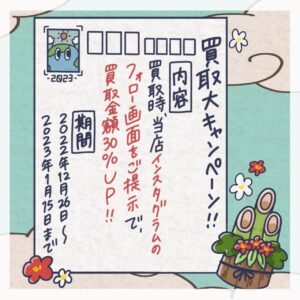 買取大キャンペーン!!
内容
買取時当店インスタグラムの
フォロー画面をご提示で、
買取金額30%UP!!
期間
2022年12月26日〜
2023年1月15日まで
-2023-